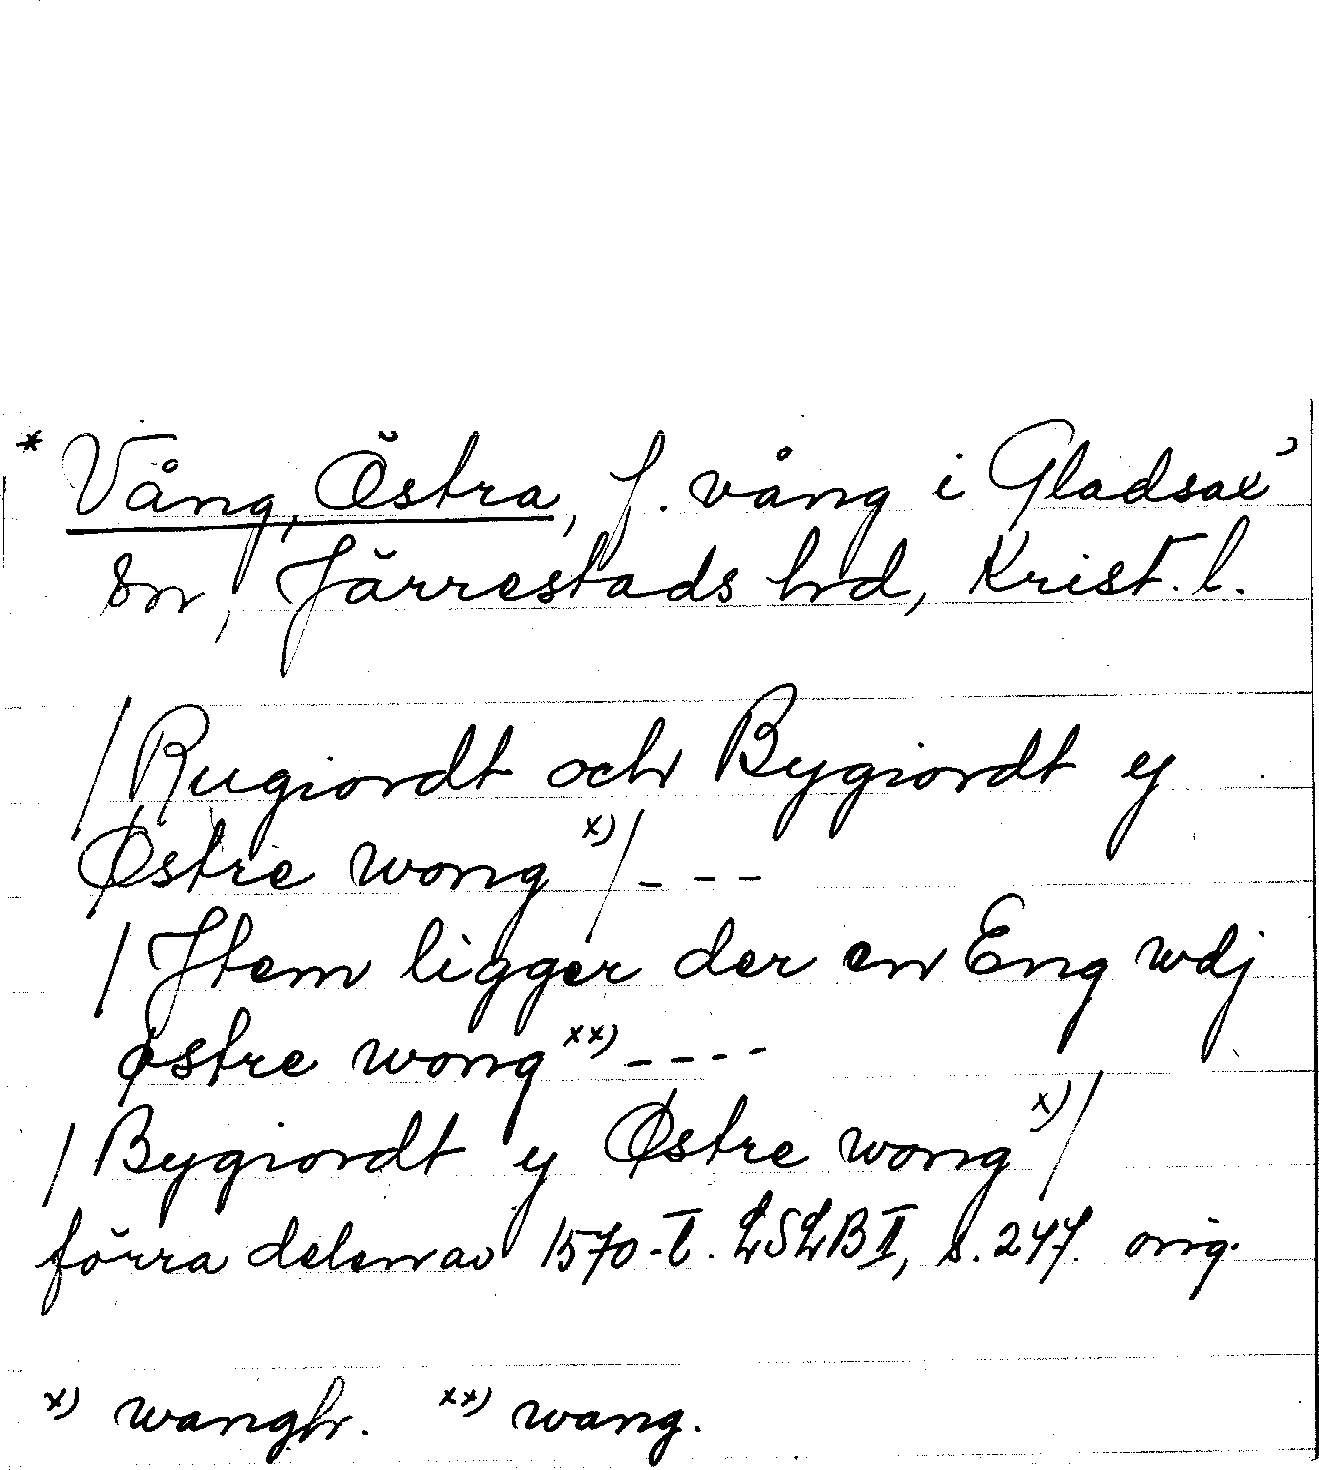 * Vång, Östra, f. vång i Gladsax'
sn, Järrestads hrd, Krist. l.
/Rugiordt och Bygiordt ey
Østre wong x)/---
/Jtem ligger der en Eng wdj
østre wong xx)----
/Bygiordt ey Østre wong x)/
förra delen av 1570-t. LSLB II, s. 247. orig.
x) wangh. xx) wang.